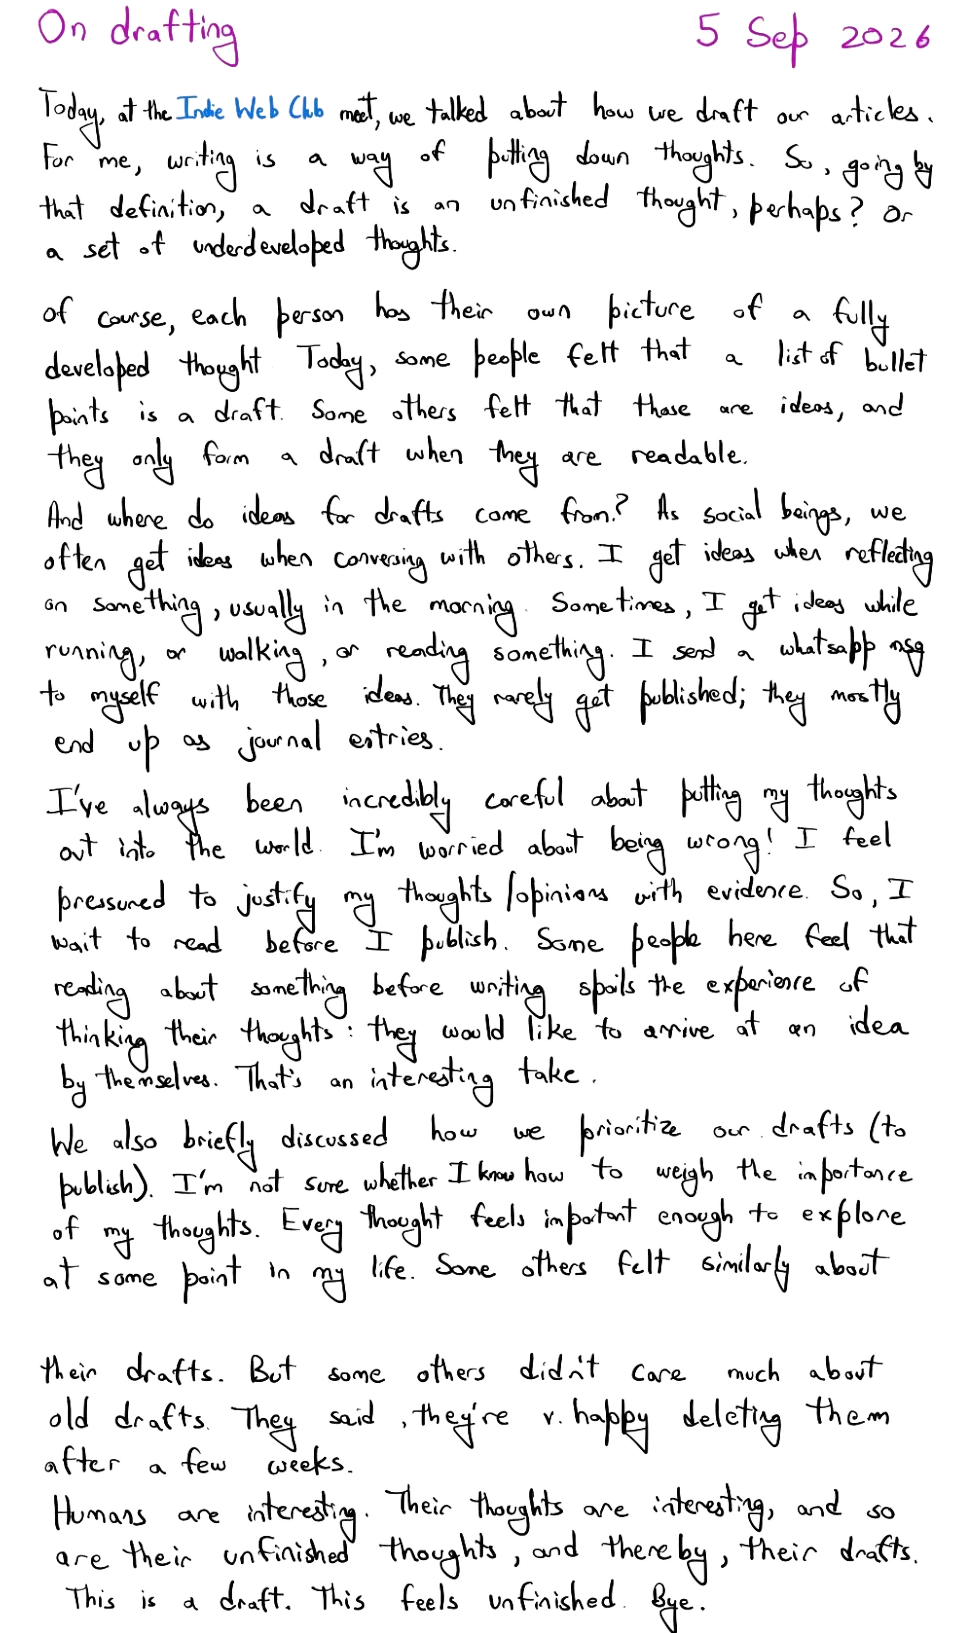 On drafting 5 Sep 2026
Today, at the Indie Web Club meet, we talked about how we draft our articles.
For me, writing is a way of putting down thoughts. So, going by
that definition, a draft is an unfinished thought, perhaps? Or
a set of underdeveloped thoughts.
Of course, each person has their own picture of a fully
developed thought Today, some people felt that a list of bullet
points is a draft. Some others felt that those are ideas, and
they only form a draft when they are readable.
And where do ideas for drafts come from? As social beings, we
often get ideas when conversing with others. I get ideas when reflecting
on something, usually in the morning. Sometimes, I get ideas while
running, or walking, or reading something. I send a whatsapp msg
to myself with those ideas. They rarely get published; they mostly
end up as journal entries.
I've always been incredibly careful about putting my thoughts
out into the world. I'm worried about being wrong! I feel
pressured to justify my thoughts/opinions with evidence. So, I
wait to read before I publish. Some people here feel that
reading about something before writing spoils the experience of
thinking their thoughts: they would like to arrive at an idea
by themselves. That's an interesting take.
We also briefly discussed how we prioritize our drafts (to
publish). I'm not sure whether I know how to weigh the importance
of my thoughts. Every thought feels important enough to explore
at some point in my life. Some others felt similarly about
their drafts. But some others didn't care much about
old drafts. They said, they're v. happy deleting them
after a few weeks.
Humans are interesting. Their thoughts are interesting, and so
are their unfinished thoughts, and thereby, their drafts.
This is a draft. This feels unfinished. Bye.